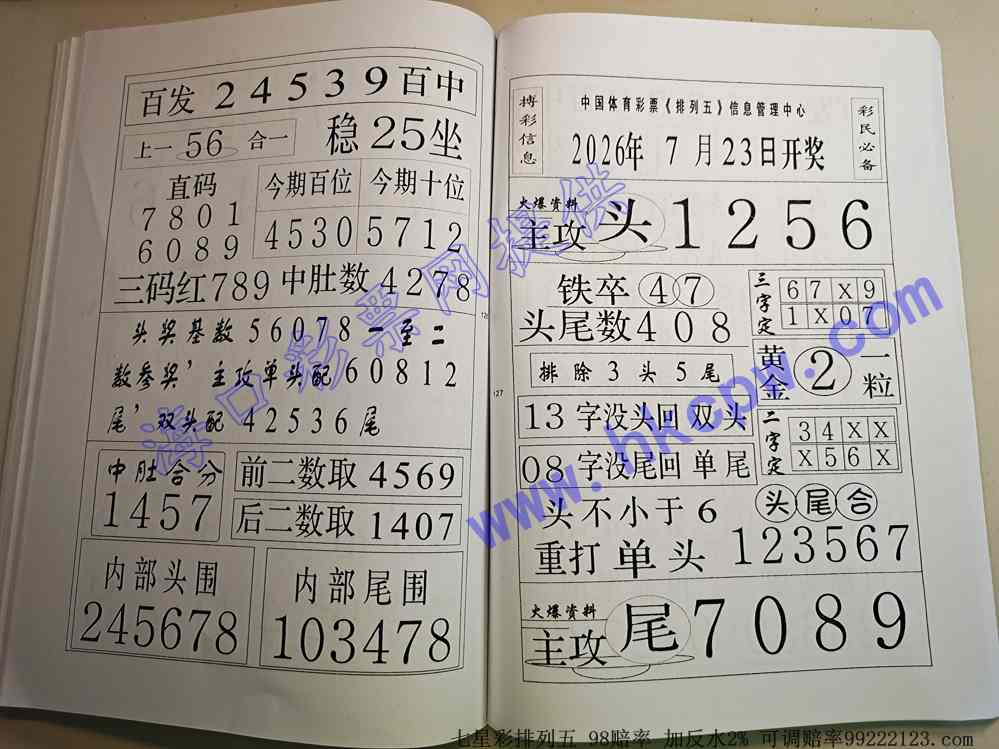 百发 24539 百中
上一 56 合一
稳25坐
直码
7801
6089
今期百位
4530
今期十位
5712
三码红789 中肚数 4278
头奖基数56078一至二
数参奖，主攻单头配60812
尾，双头配42536尾
中肚合分
1457
前二数取 4569
后二数取 1407
内部头围
245678
内部尾围
103478
126
127
搏彩信息
中国体育彩票《排列五》信息管理中心
2026年 7月23日开奖
彩民必备
火爆资料
主攻 头 1256
铁卒 47
头尾数408
三字定
67X9
1X07
排除3头5尾
黄金 2 一粒
13 字没头回 双头
08 字没尾回 单尾
二字定
34XX
X56X
头不小于6
头尾合
重打单头 123567
火爆资料
主攻 尾 7089
海口彩票网提供
www.hkcpw.com
七星彩排列五 98赔率 加反水2% 可调赔率99222123.com